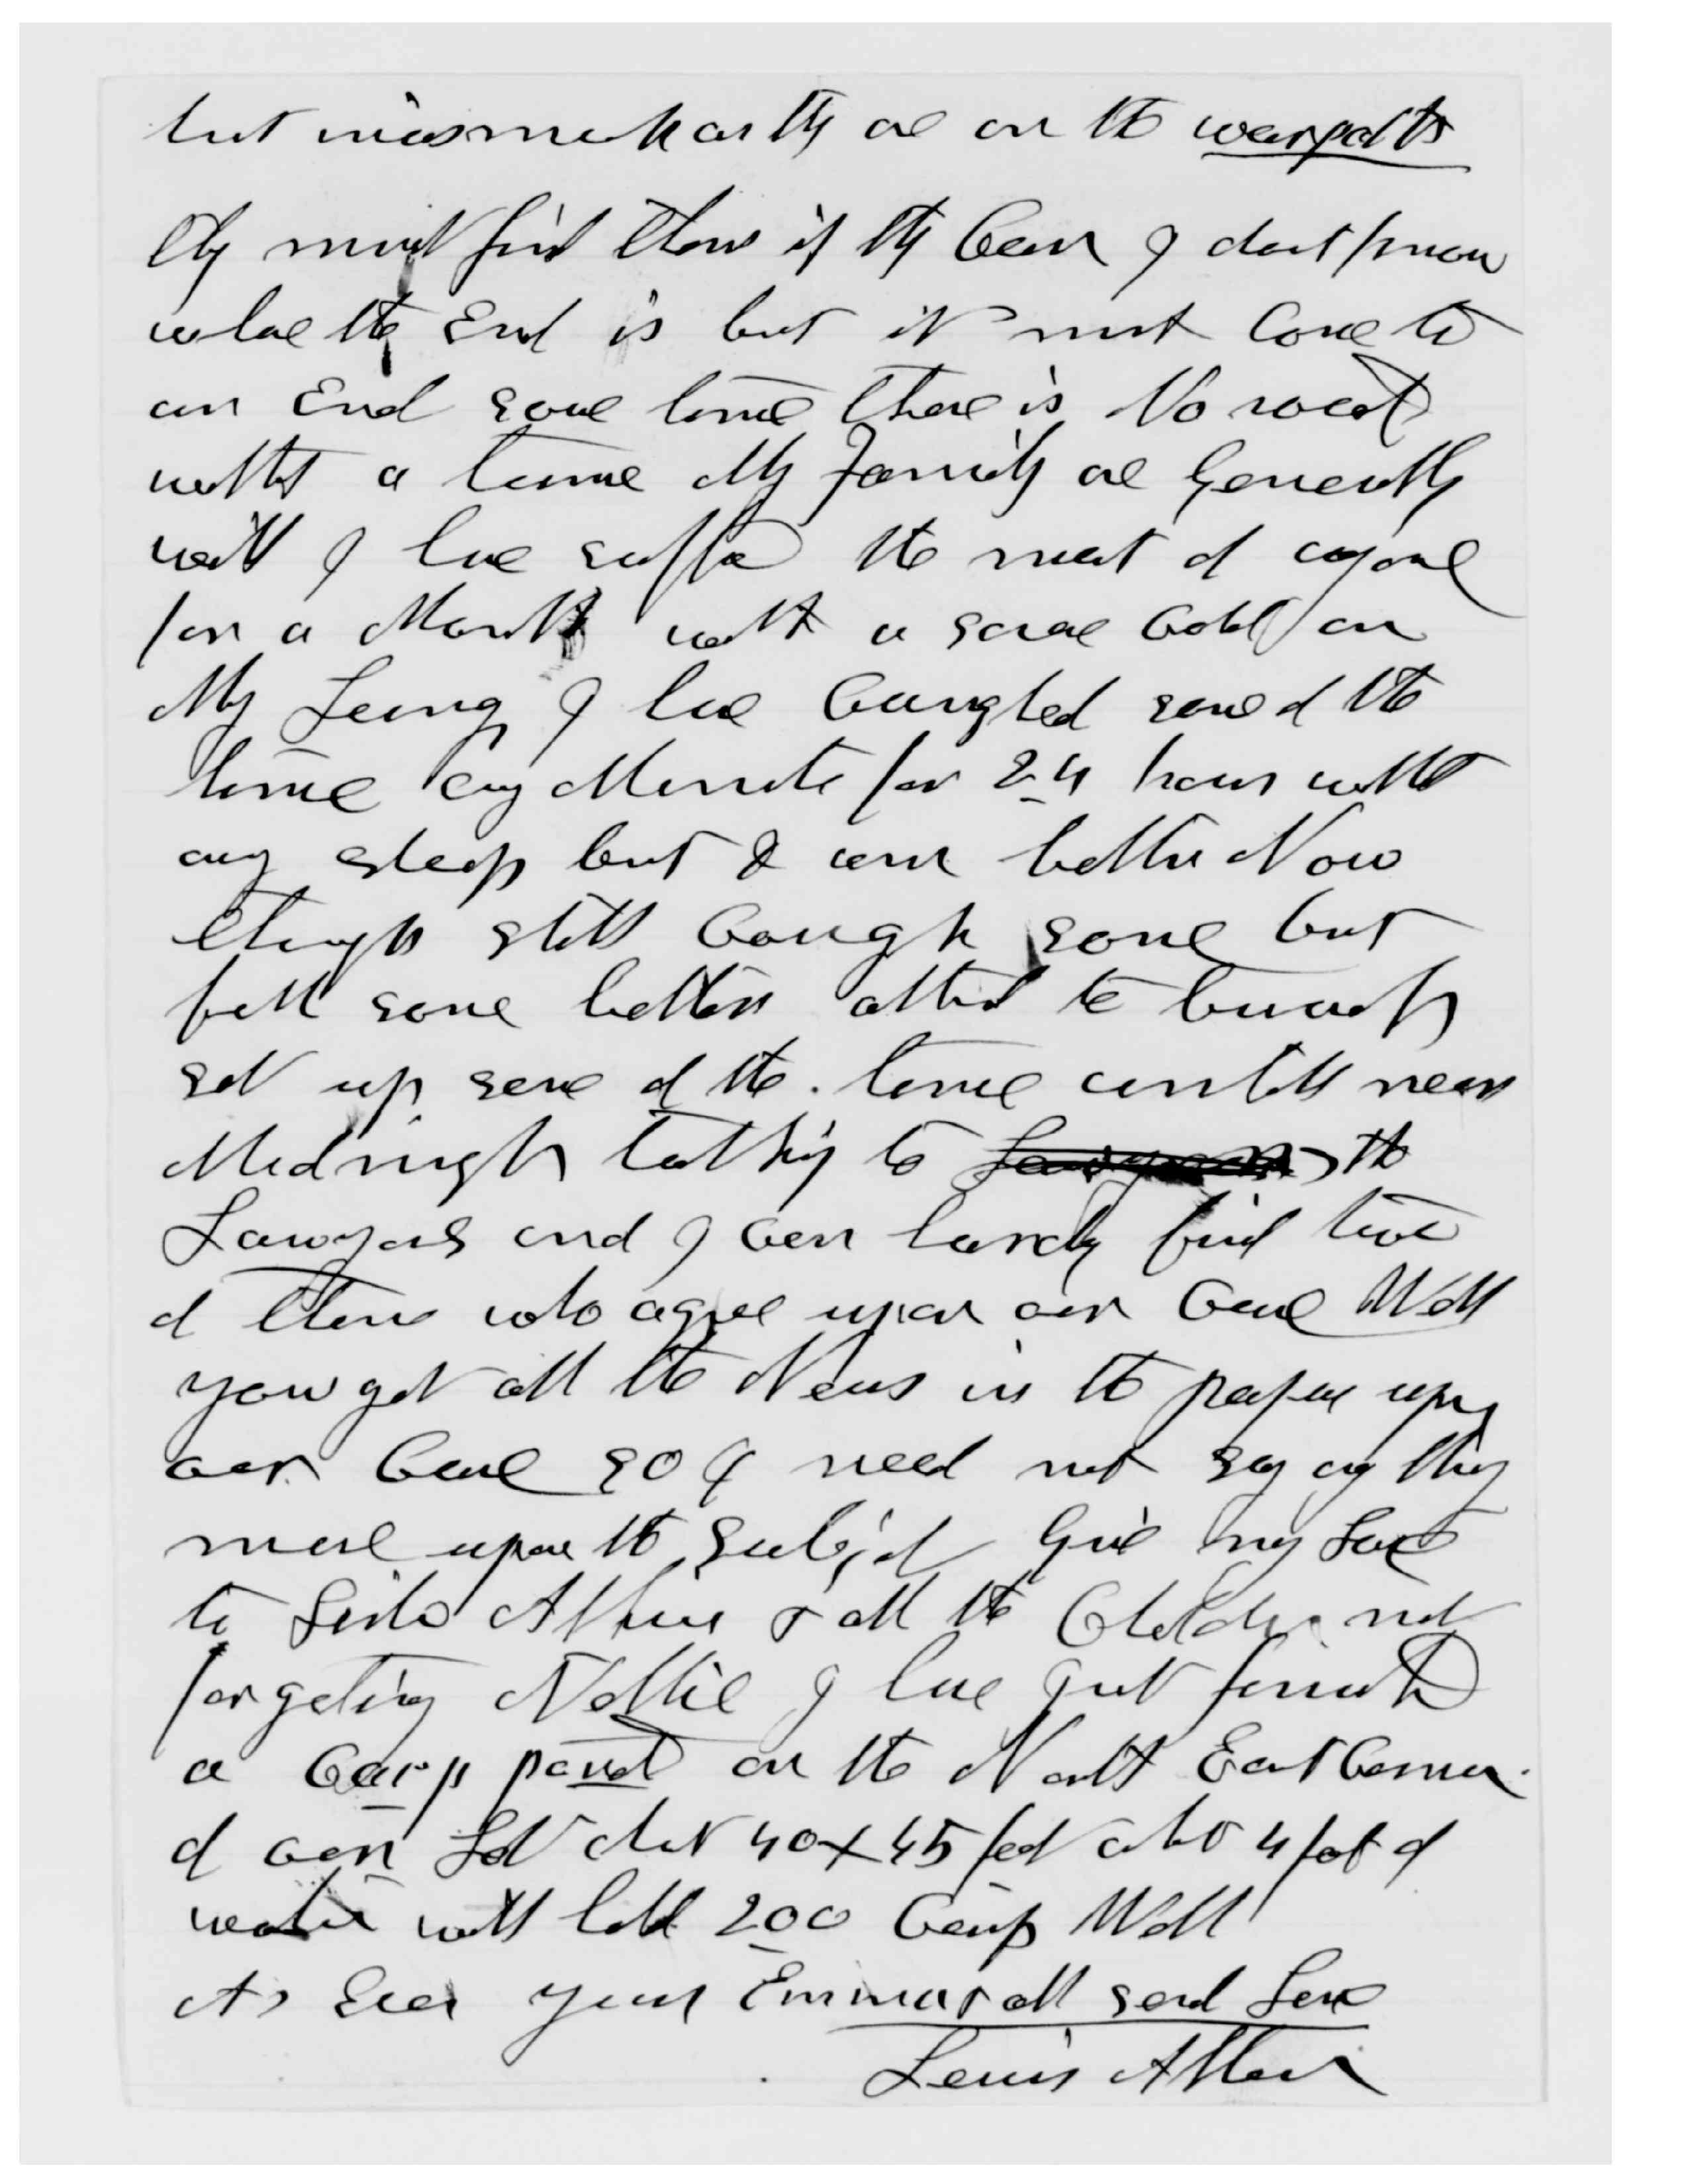 but inasmuch as they are on the warpath
they must find them if they can I dont know
what the End is but it must Come to
an End some time there is No road
without a turne My Family are Generally
well I have suffered the most of anyone
for a Month with a severe Cold on
My Lungs I have Caughed some of the
time evry Minute for 24 hours without
any sleep but I am better Now
though still Cough some but
feel some better
set up some of the time untill near
Midnight talking to the
Lawyers and I can hardly find two
of them who agree upon our Case Well
you get all the News in the paper upon
our Case so I need not say anything
more upon the Subject Give my Love
to Sister & all the Children not
forgeting Nellie I have just finished
a Carp pond on the North East Corner
of our Lot about 40x45 feet about 4 foot of
water will hold 200 Carp Well
As Ever yours Emma & all send Love
Lewis Allen